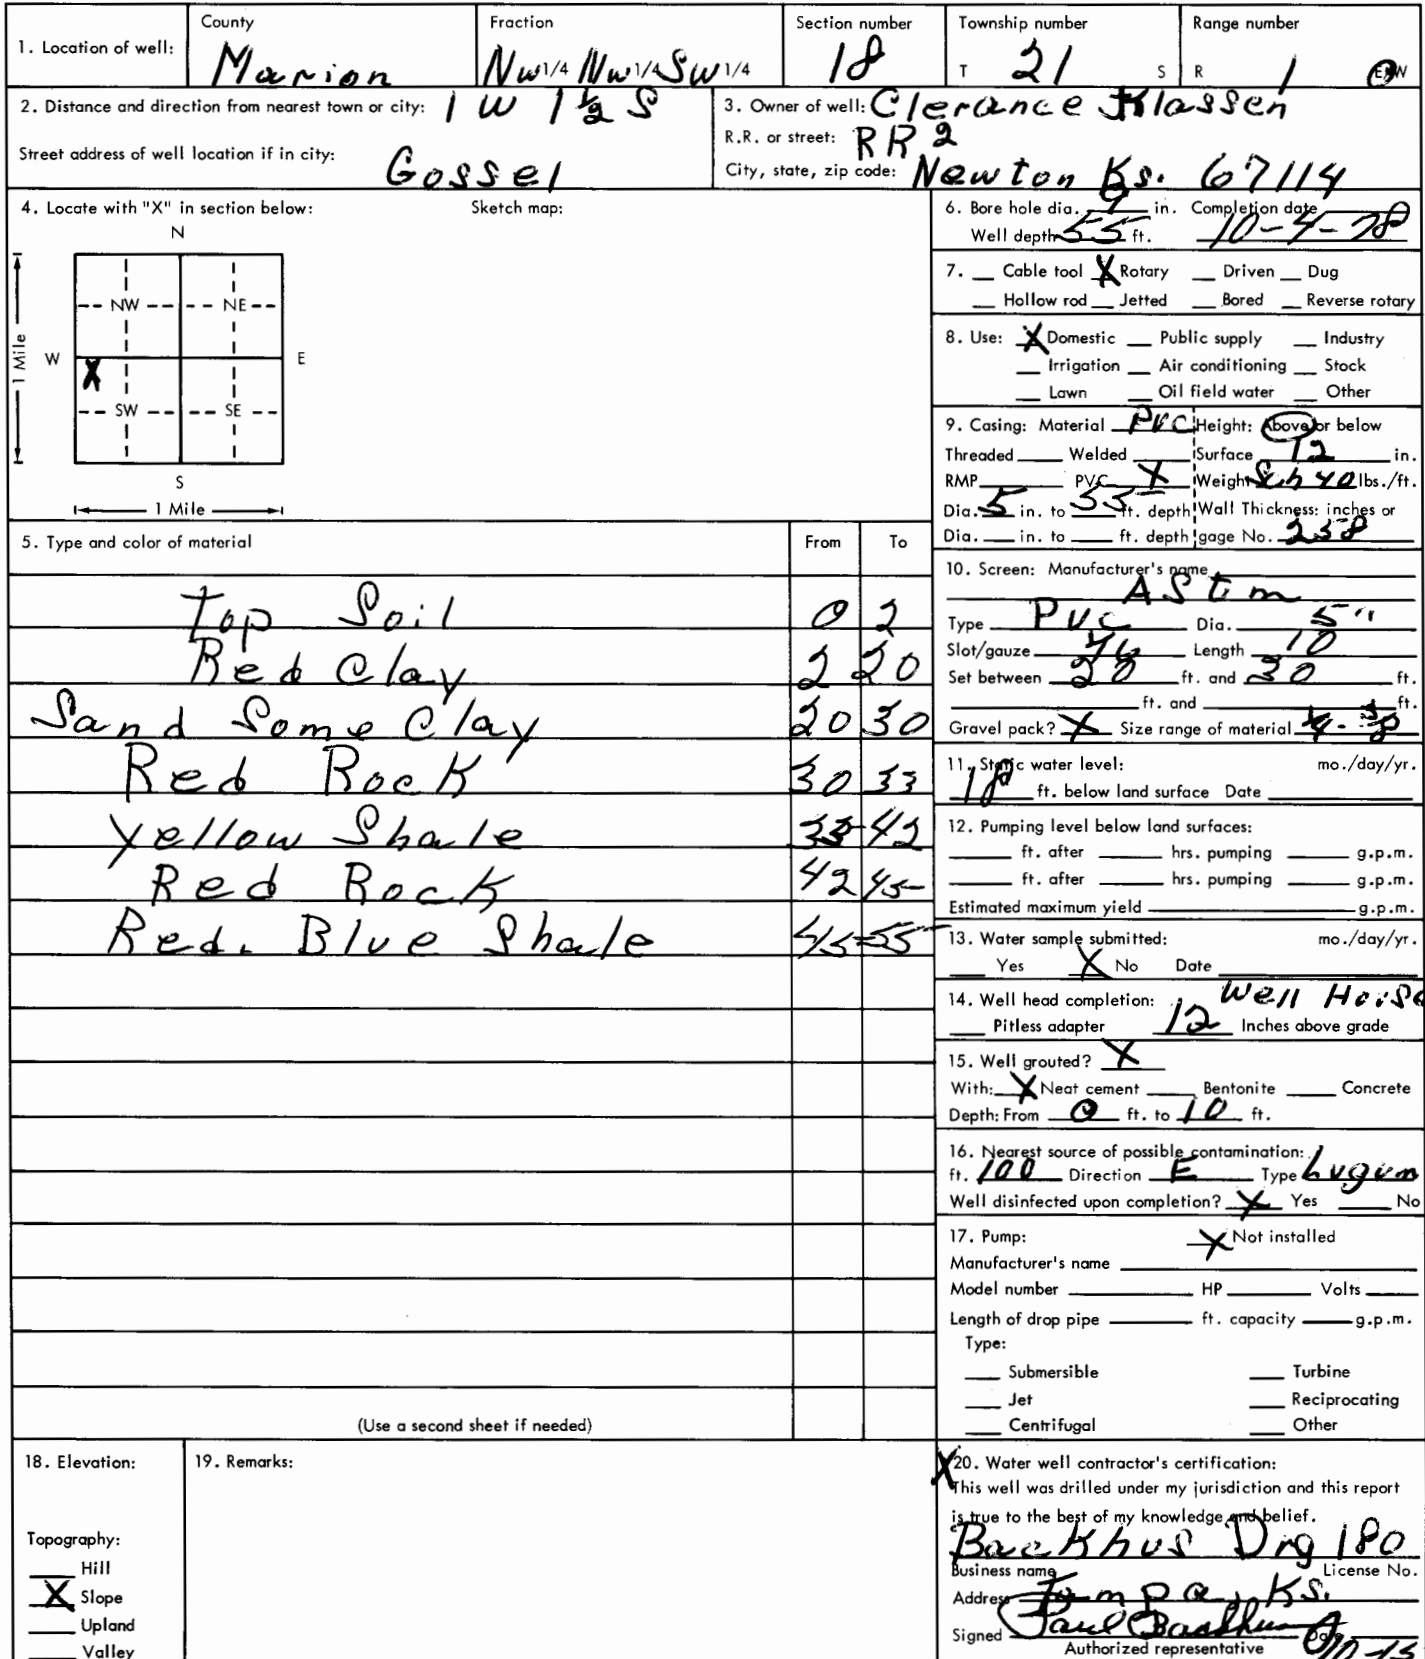 1. Location of well: County Marion Fraction NW 1/4 NW 1/4 SW 1/4 Section number 18 Township number T 21 S Range number R 1 E/W
2. Distance and direction from nearest town or city: 1 W 1 1/2 S
Street address of well location if in city: Gossel
3. Owner of well: Clerance Klassen
R.R. or street: RR 2
City, state, zip code: Newton Ks. 67114
4. Locate with "X" in section below: Sketch map:
N
NW NE
W X E
SW SE
S
1 Mile
1 Mile
5. Type and color of material From To
Top Soil 0 2
Red Clay 2 20
Sand Some Clay 20 30
Red Rock 30 33
Yellow Shale 33 42
Red Rock 42 45
Red. Blue Shale 45 55
(Use a second sheet if needed)
6. Bore hole dia. 9 in. Completion date
Well depth 55 ft. 10-4-78
7. Cable tool X Rotary Driven Dug
Hollow rod Jetted Bored Reverse rotary
8. Use: X Domestic Public supply Industry
Irrigation Air conditioning Stock
Lawn Oil field water Other
9. Casing: Material PVC Height: Above or below
Threaded Welded Surface 12 in.
RMP PVC X Weight Sch 40 lbs./ft.
Dia. 5 in. to 55 ft. depth Wall Thickness: inches or
Dia. in. to ft. depth gage No. 258
10. Screen: Manufacturer's name
ASTM
Type PVC Dia. 5"
Slot/gauze Length 10
Set between 20 ft. and 30 ft.
ft. and ft.
Gravel pack? X Size range of material
11. Static water level: mo./day/yr.
18 ft. below land surface Date
12. Pumping level below land surfaces:
ft. after hrs. pumping g.p.m.
ft. after hrs. pumping g.p.m.
Estimated maximum yield g.p.m.
13. Water sample submitted: mo./day/yr.
Yes X No Date
14. Well head completion: Well House
Pitless adapter 12 Inches above grade
15. Well grouted? X
With: X Neat cement Bentonite Concrete
Depth: From 0 ft. to 10 ft.
16. Nearest source of possible contamination:
ft. 100 Direction E Type Lugun
Well disinfected upon completion? X Yes No
17. Pump: X Not installed
Manufacturer's name
Model number HP Volts
Length of drop pipe ft. capacity g.p.m.
Type:
Submersible Turbine
Jet Reciprocating
Centrifugal Other
18. Elevation:
Topography:
Hill
X Slope
Upland
Valley
19. Remarks:
X 20. Water well contractor's certification:
This well was drilled under my jurisdiction and this report
is true to the best of my knowledge and belief.
Backhus Drg 180
Business name License No.
Address Tampa, Ks.
Signed Paul Backhus Date
Authorized representative